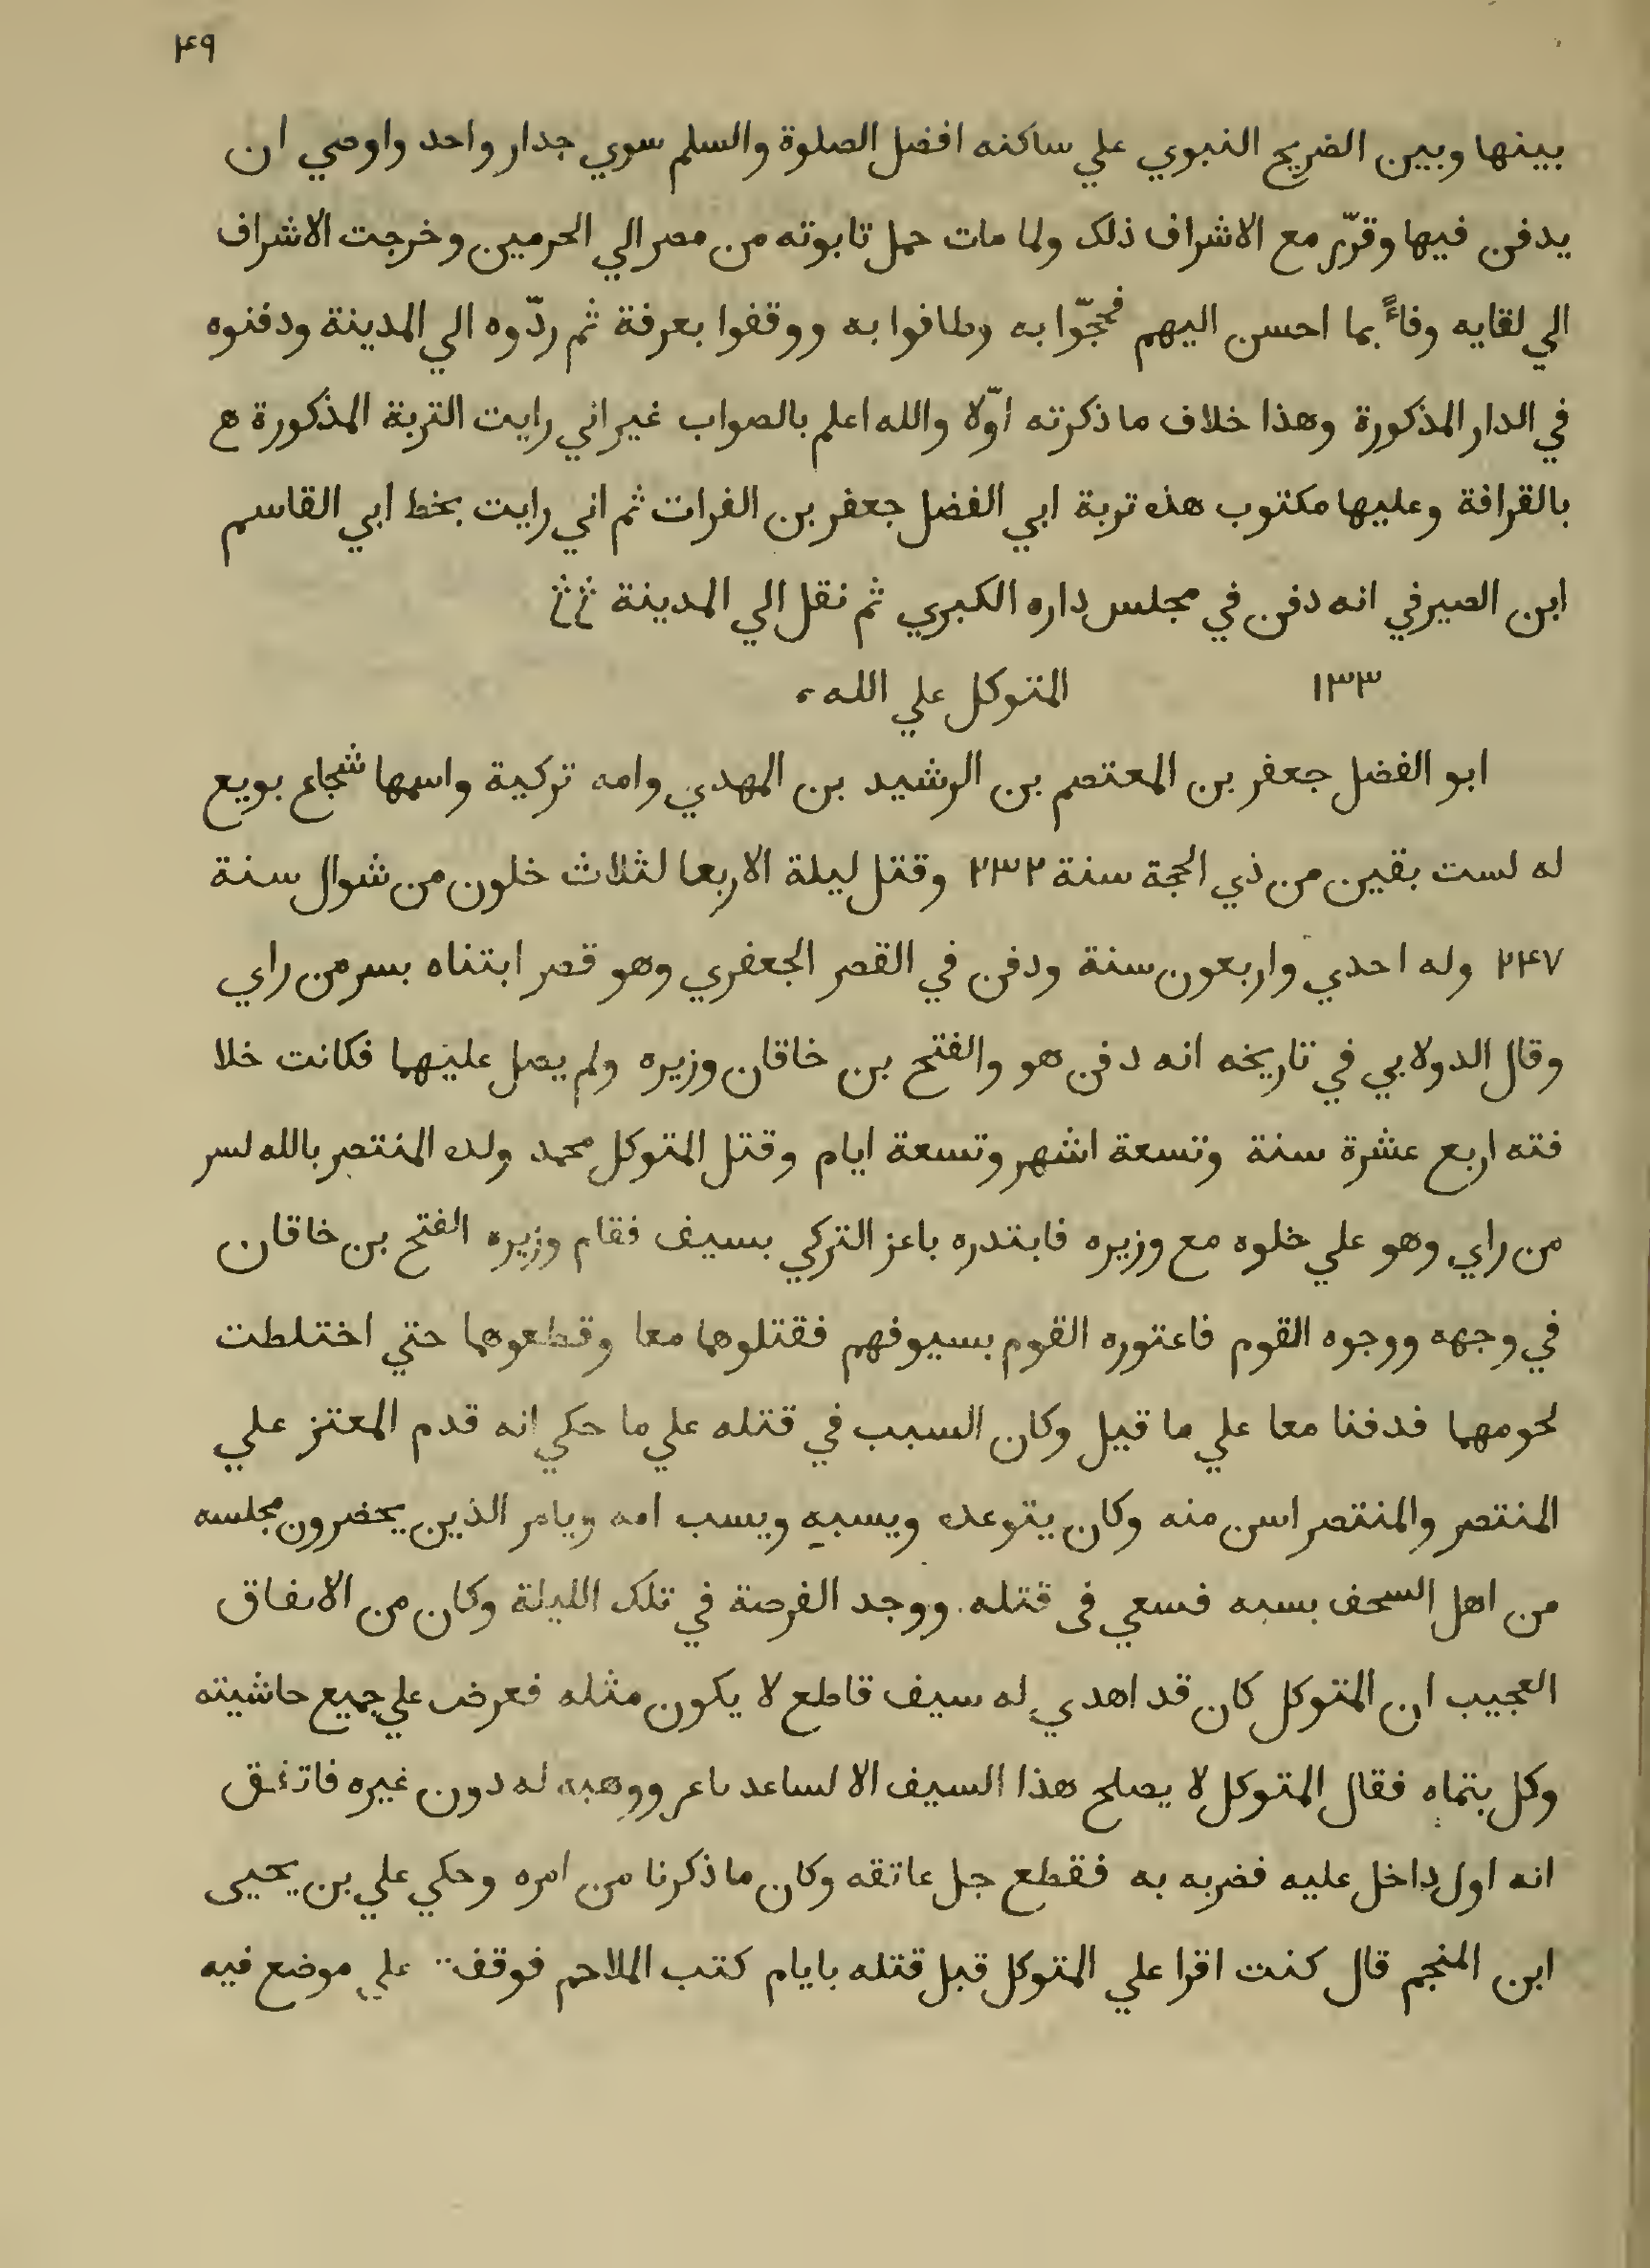 ۴۹
بينها وبين الضريح النبوي علي ساكنه افضل الصلوة والسلم سوي جدار واحد واوصي ان
يدفن فيها وقرّر مع الاشراف ذلك ولما مات حمل تابوته من مصر الي الحرمين وخرجت الاشراف
الي لقايه وفاءً بما احسن اليهم فحجّوا به وطافوا به ووقفوا بعرفة ثم ردّوه الي المدينة ودفنوه
في الدار المذكورة وهذا خلاف ما ذكرته اوّلا والله اعلم بالصواب غير اني رايت التربة المذكورة ه
بالقرافة وعليها مكتوب هذه تربة ابي الفضل جعفر بن الفرات ثم اني رايت بخط ابي القاسم
ابن الصيرفي انه دفن في مجلس داره الكبري ثم نقل الي المدينة
١٣٣ المتوكل علي الله
ابو الفضل جعفر بن المعتصم بن الرشيد بن المهدي وامه تركية واسمها شجاع بويع
له لست بقين من ذي الحجة سنة ٢٣٢ وقتل ليلة الاربعا لثلاث خلون من شوال سنة
٢۴٧ وله احدي واربعون سنة ودفن في القصر الجعفري وهو قصر ابتناه بسر من راي
وقال الدولابي في تاريخه انه دفن هو والفتح بن خاقان وزيره ولم يصل عليهما فكانت خلا
فته اربع عشرة سنة وتسعة اشهر وتسعة ايام وقتل المتوكل محمد ولده المنتصر بالله لسر
من راي وهو علي خلوه مع وزيره فابتدره باعز التركي بسيف فقام وزيره الفتح بن خاقان
في وجهه ووجوه القوم فاعتوره القوم بسيوفهم فقتلوهما معا وقطعوهما حتي اختلطت
لحومهما فدفنا معا علي ما قيل وكان السبب في قتله علي ما حكي انه قدم المعتز علي
المنتصر والمنتصر اسن منه وكان يتوعده ويسبه ويسب امه ويامر الذين يحضرون مجلسه
من اهل السحف بسبه فسعي فى قتله ووجد الفرصة في تلك الليلة وكان من الاىفاق
العجيب ان المتوكل كان قد اهدي له سيف قاطع لا يكون مثله فعرض علي جميع حاشيته
وكل يتماه فقال المتوكل لا يصلح هذا السيف الا لساعد ىاعر ووهبه له دون غيره فاتفق
انه اول داخل عليه فضربه به فقطع جل عاتقه وكان ما ذكرنا من امره وحكي علي بن يحيى
ابن المنجم قال كنت اقرا علي المتوكل قبل قتله بايام كتب الملاحم فوقف علي موضع فيه